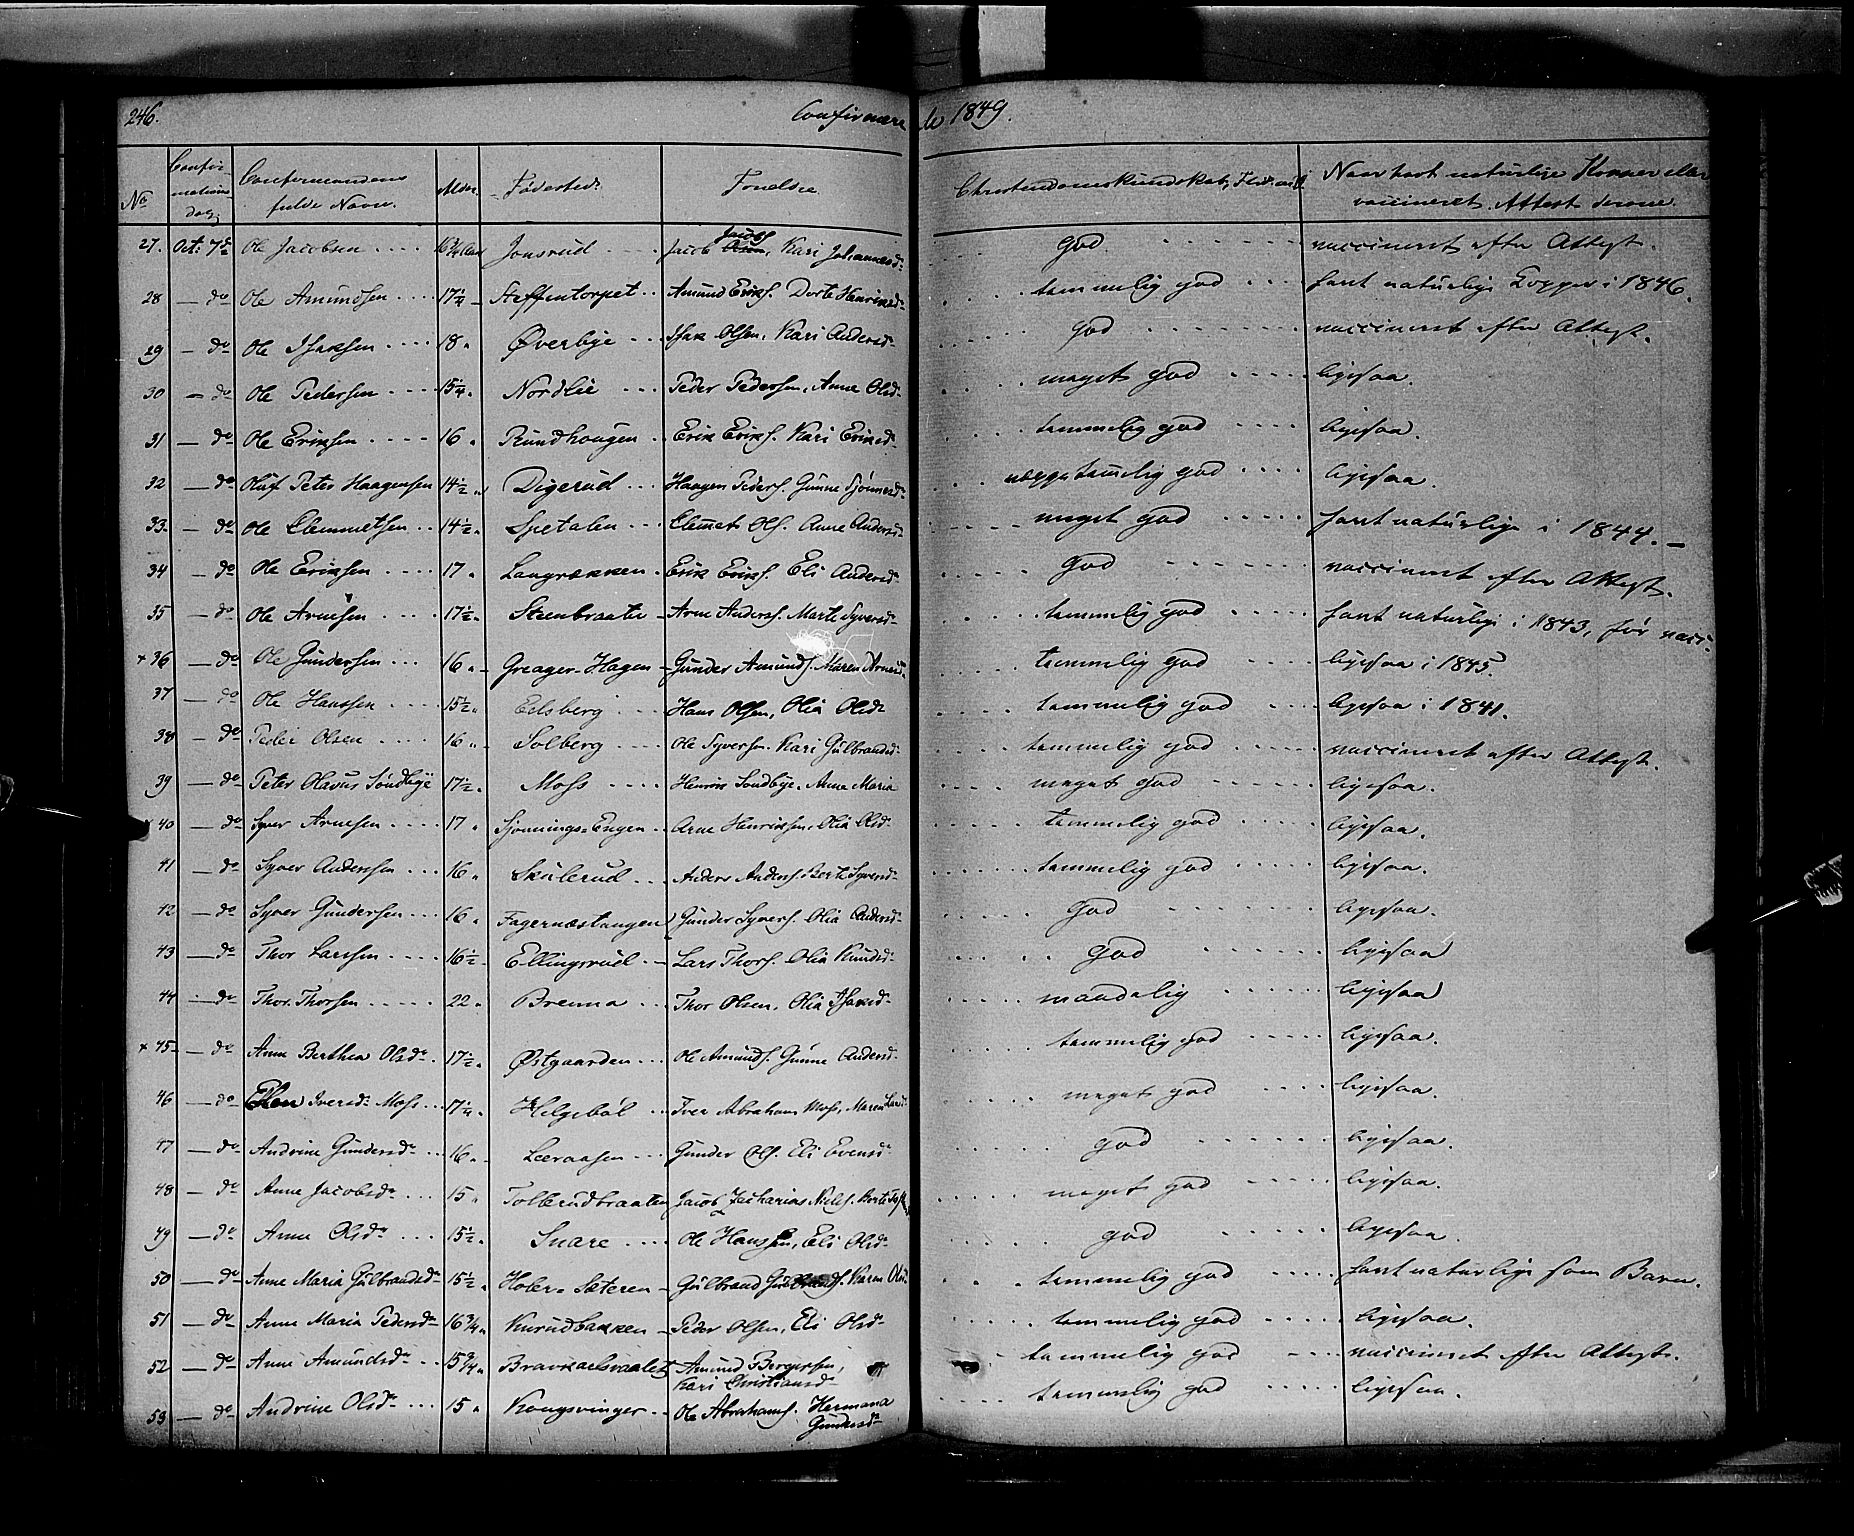 246. Confirmere de 1849.
No Confirmations dag. Confirmandens fulde Navn. Alder. Fødested. Forældre Christendomskundskab, Flid Naar havt naturlige Kopper eller vaccineret. Attest derom.
27. Oct. 7de Ole Jacobsen 16 3/4 Aar Jonsrud Jacob Jacobs. Kari Johannesdr god vaccineret efter Attest.
28 — do Ole Amundsen 17 1/4 Steffentorpet Amund Eriks. Dorte Henriksdr temmelig god havt naturlige Kopper i 1846.
29 — do Ole Isaksen 18 Øverbye Isak Olsen, Kari Andersdr god vaccineret efter Attest.
30 — do Ole Pedersen 15 1/4 Nordlie Peder Pedersen, Anne Olsdr meget god ligesaa.
31 — do Ole Eriksen 16 Rundhougen Erik Eriks. Kari Eriksdr temmelig god ligesaa.
32 — do Oluf Peter Haagensen 14 1/2 Digerud Haagen Peders. Gunne neppe temelig god ligesaa.
33. — do Ole Clemmetsen 14 1/2 Spetalen Clemet Ols. Anne Andersdr meget god havt naturlige i 1844. —
34 — do Ole Eriksen 17 Langrækken Erik Eriks. Eli Andersdr God vaccineret efter Attest.
35 — do Ole Arnesen 17 1/2 Steenbraate Arne Anders. Marte Syversdr temmelig god havt naturlige i 1843, før vacc.
+ 36 — do Ole Gundersen 16 Greager-Hagen Gunder Amunds. Maren Arnesdr temmelig god ligesaa i 1845.
37 — do Ole Hanssen 15 1/2 Edsberg Hans Olsen, Olia Olsdr temmelig god ligesaa i 1841.
38 — do Peder Olsen 16 Solberg Ole Syversen. Kari Gulbrandsdr temmelig god vaccineret efter Attest.
39 — do Peter Olavus Sundbye 17 1/2 Moss Henrik Sundbye, Anne Maria meget god ligesaa.
40 — do Syver Arnesen 17 Sjønnings-Engen Arne Henriksen, Olia Olsdr temmelig god ligesaa.
41 — do Syver Anderssen 16 Skulerud Anders Anders. Berte Syversdr temmelig god ligesaa.
42 — do Syver Gundersen 16 Fagernæstangen Gunder Syvers. Olia Andersdr God ligesaa.
43 — do Thor Larssen 16 1/2 Ellingsrud Lars Thors. Olia Knudsdr god ligesaa
44 — do Thor Thorsen 22 Brenna Thor Olsen, Olia Isaksdr maadelig ligesaa
+ 45 — do Anne Berthea Olsdr 17 1/2 Østgaarden Ole Amunds. Gunne Andersdr temmelig god ligesaa.
46 — do Ellen Iversdr Moss 17 1/4 Helgebøl Iver Abraham Moss, Maren meget god ligesaa.
47 — do Andrine Gundersdr 16 Leeraasen Gunder Ols. Eli Evensdr god ligesaa.
48 — do Anne Jacobsdr 15 Tollerudbraaten Jacob Zacharias Niels. Berte meget god ligesaa.
49 — do Anne Olsdr 15 1/2 Snare Ole Hanssen, Eli Olsdr god ligesaa.
50 — do Anne Maria Gulbrandsdr 15 1/2 Holer-Sæteren Gulbrand Gulbrands. Karen Olsdr temmelig god havt naturlige som Barn.
51 — do Anne Maria Pedersdr 16 3/4 Knrudbakken Peder Olsen, Eli Olsdr temmelig god ligesaa.
52 — do Anne Amundsdr 15 3/4 Amund Bergersen, Kari Christiansdr temmelig god vaccineret efter Attest.
53 — do Andrine Olsdr 15 Kongsvinger Ole Abrahams. Hermana Gundersdr temmelig god ligesaa.